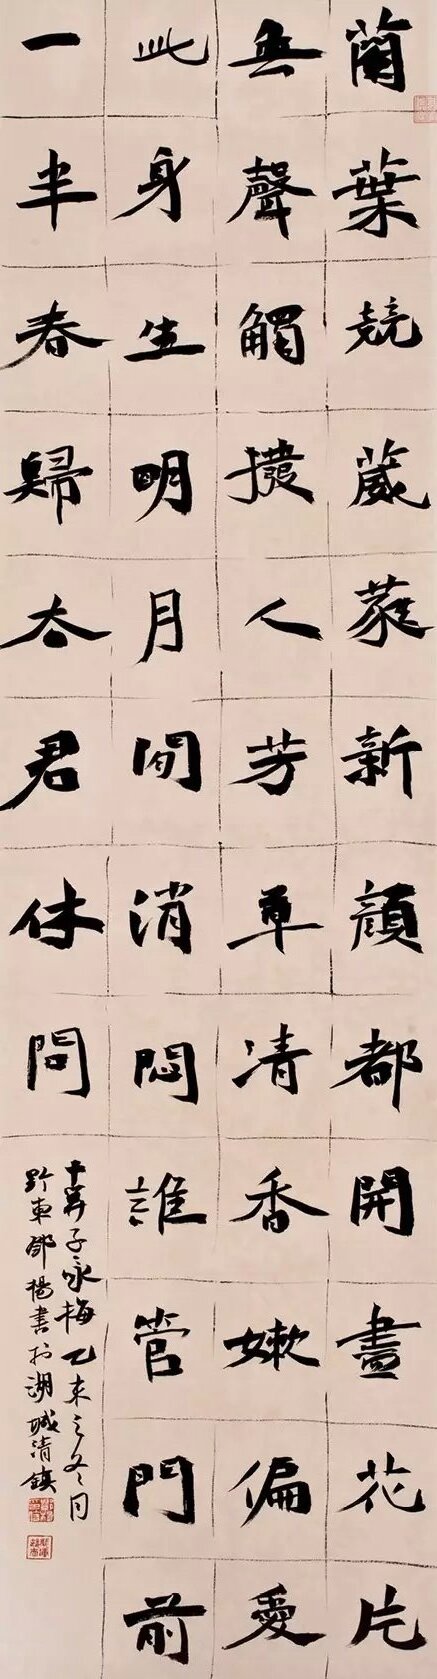 蘭葉競葳蕤新顔都開盡花片
無聲觸撥人芳草清香嫩偏愛
此身生明月閒消悶誰管門前
一半春歸去君休問
卜算子咏梅乙未之冬月
黔東鄧楊書於湖城清鎮